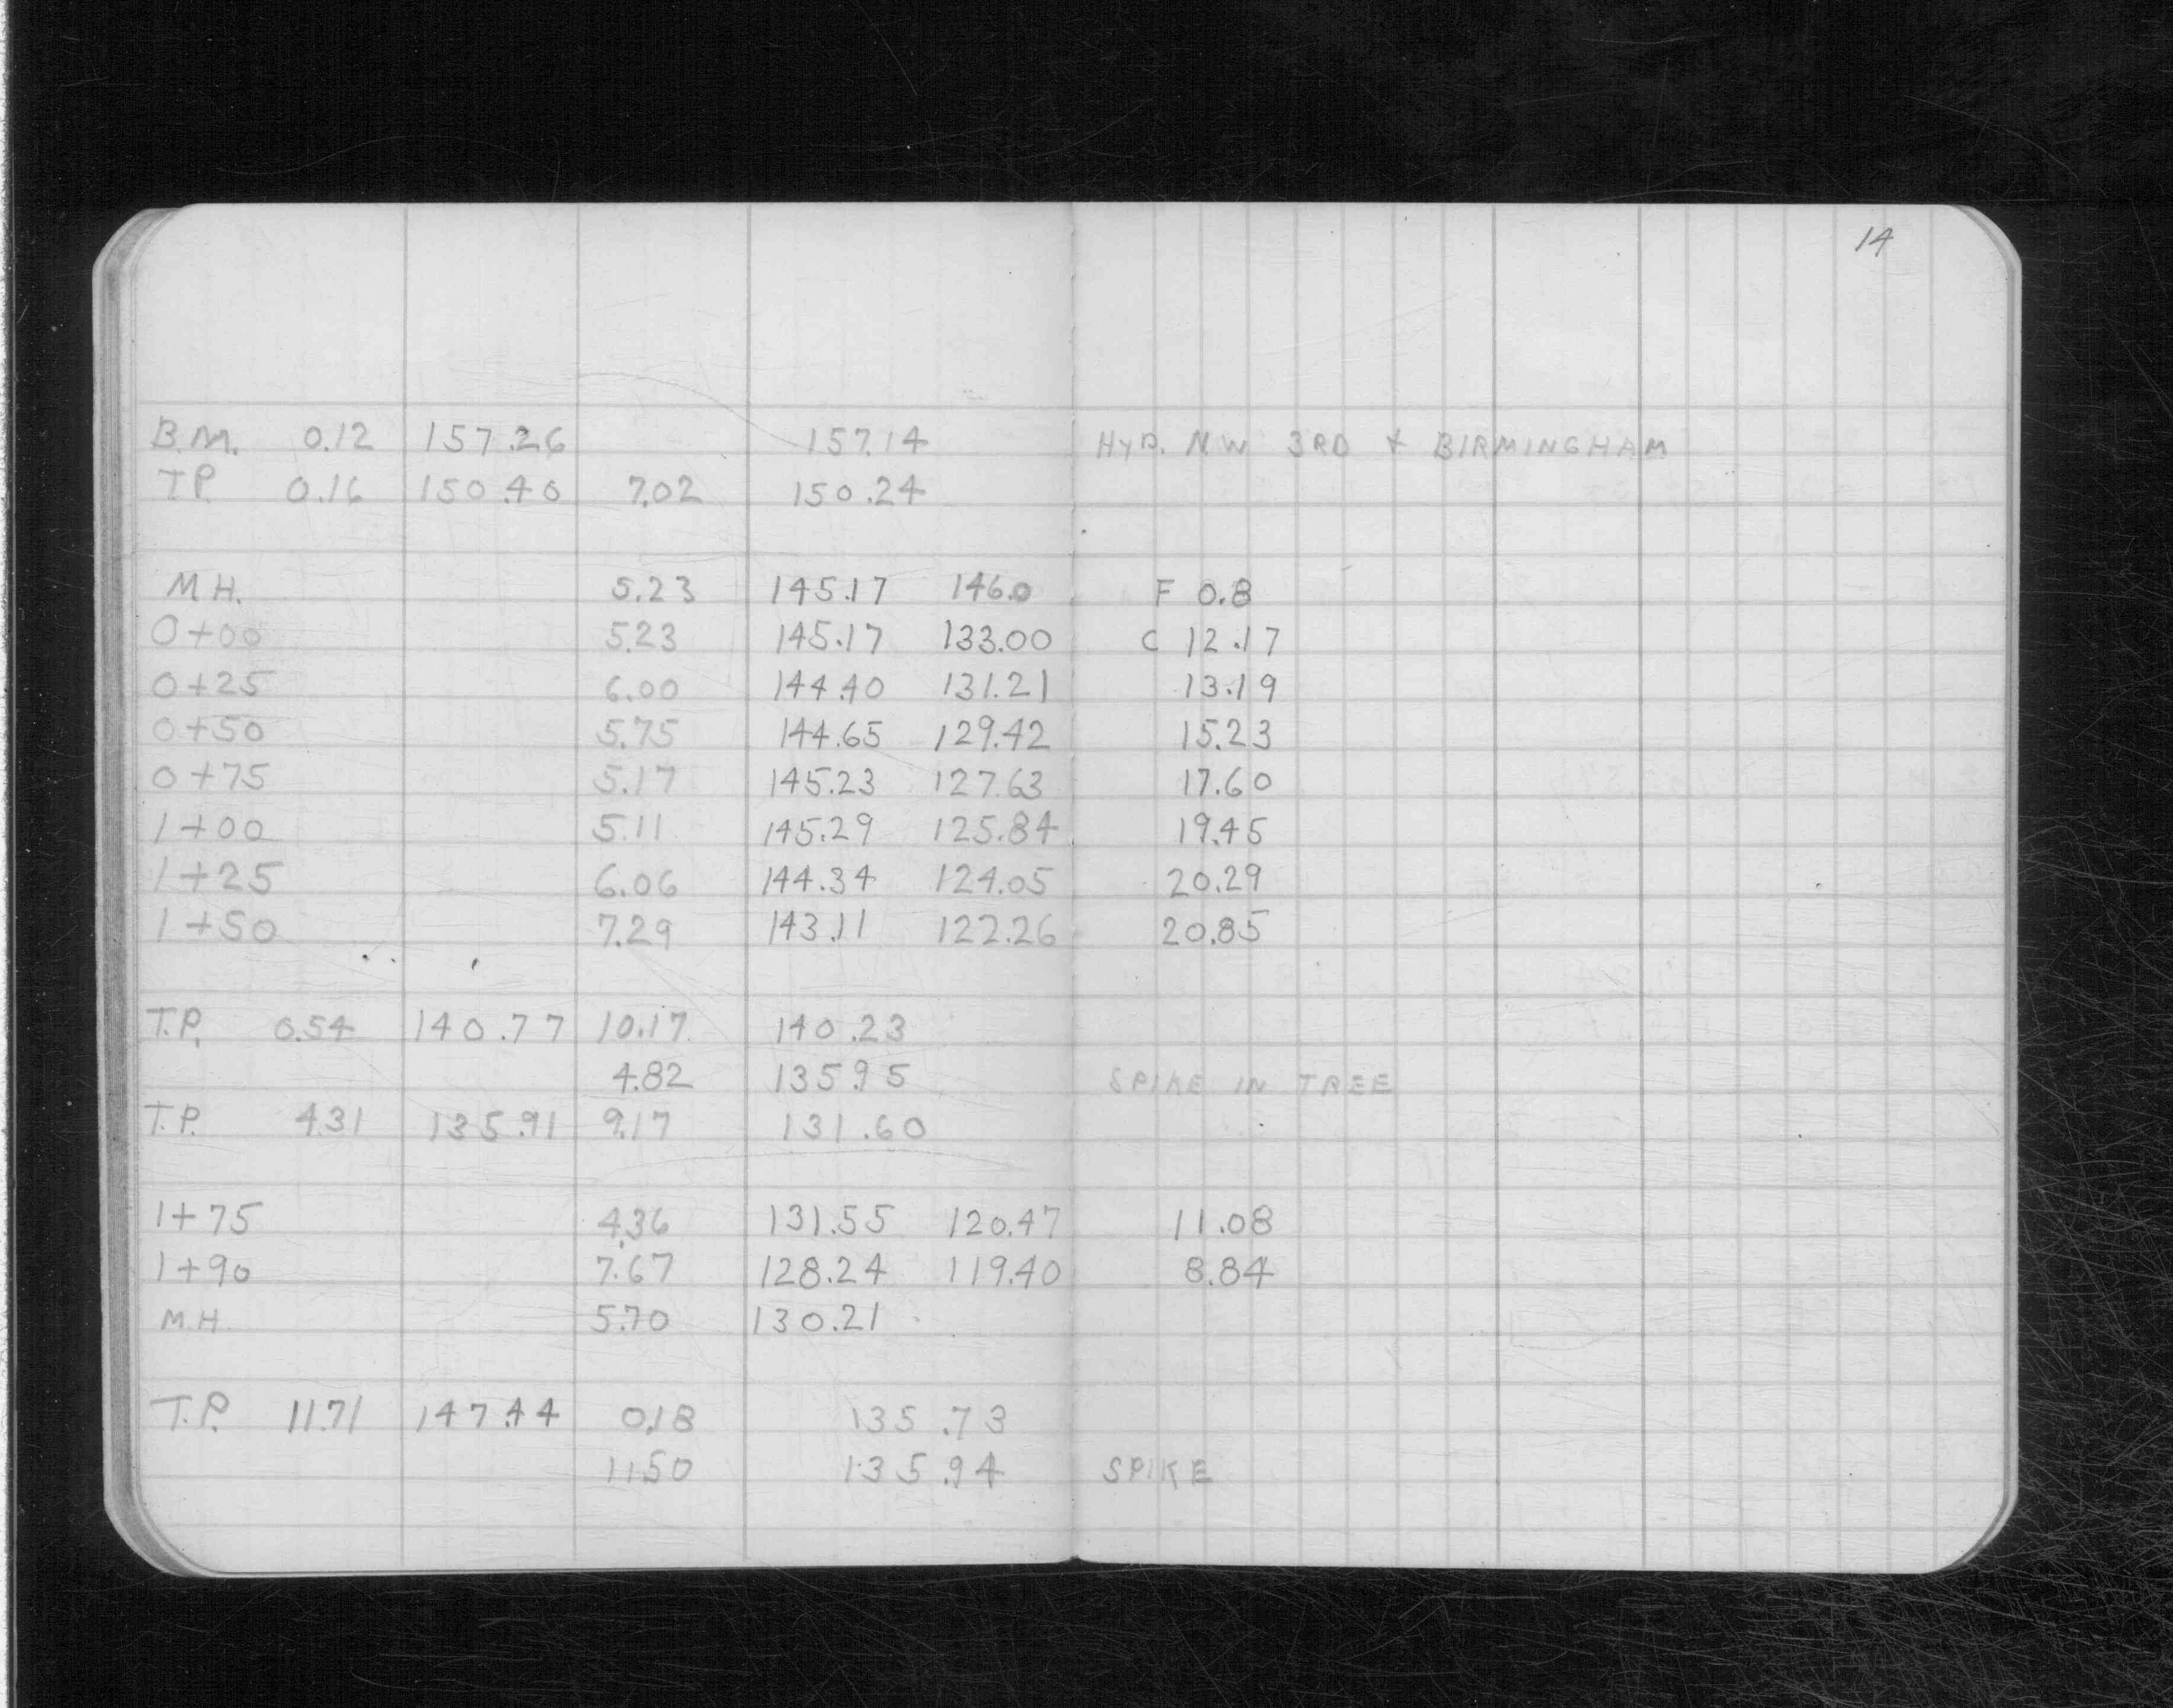 14
B.M. 0.12 157.26 157.14 HYD. NW 3RD + BIRMINGHAM
T.P. 0.16 150.40 7.02 150.24
M.H. 5.23 145.17 146.0 F 0.8
0+00 5.23 145.17 133.00 C 12.17
0+25 6.00 144.40 131.21 13.19
0+50 5.75 144.65 129.42 15.23
0+75 5.17 145.23 127.63 17.60
1+00 5.11 145.29 125.84 19.45
1+25 6.06 144.34 124.05 20.29
1+50 7.29 143.11 122.26 20.85
T.P. 0.54 140.77 10.17 140.23
4.82 135.95 SPIKE IN TREE
T.P. 4.31 135.91 9.17 131.60
1+75 4.36 131.55 120.47 11.08
1+90 7.67 128.24 119.40 8.84
M.H. 5.70 130.21
T.P. 11.71 147.44 0.18 135.73
11.50 135.94 SPIKE